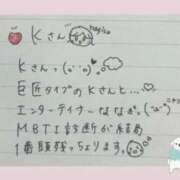 Kさん
Kさんっ(ˊᵕˋ)♡
巨匠タイプのKさんと...♡
エンターテイナーななぎ。
MBTI診断が結局
1番頭残っちょります。